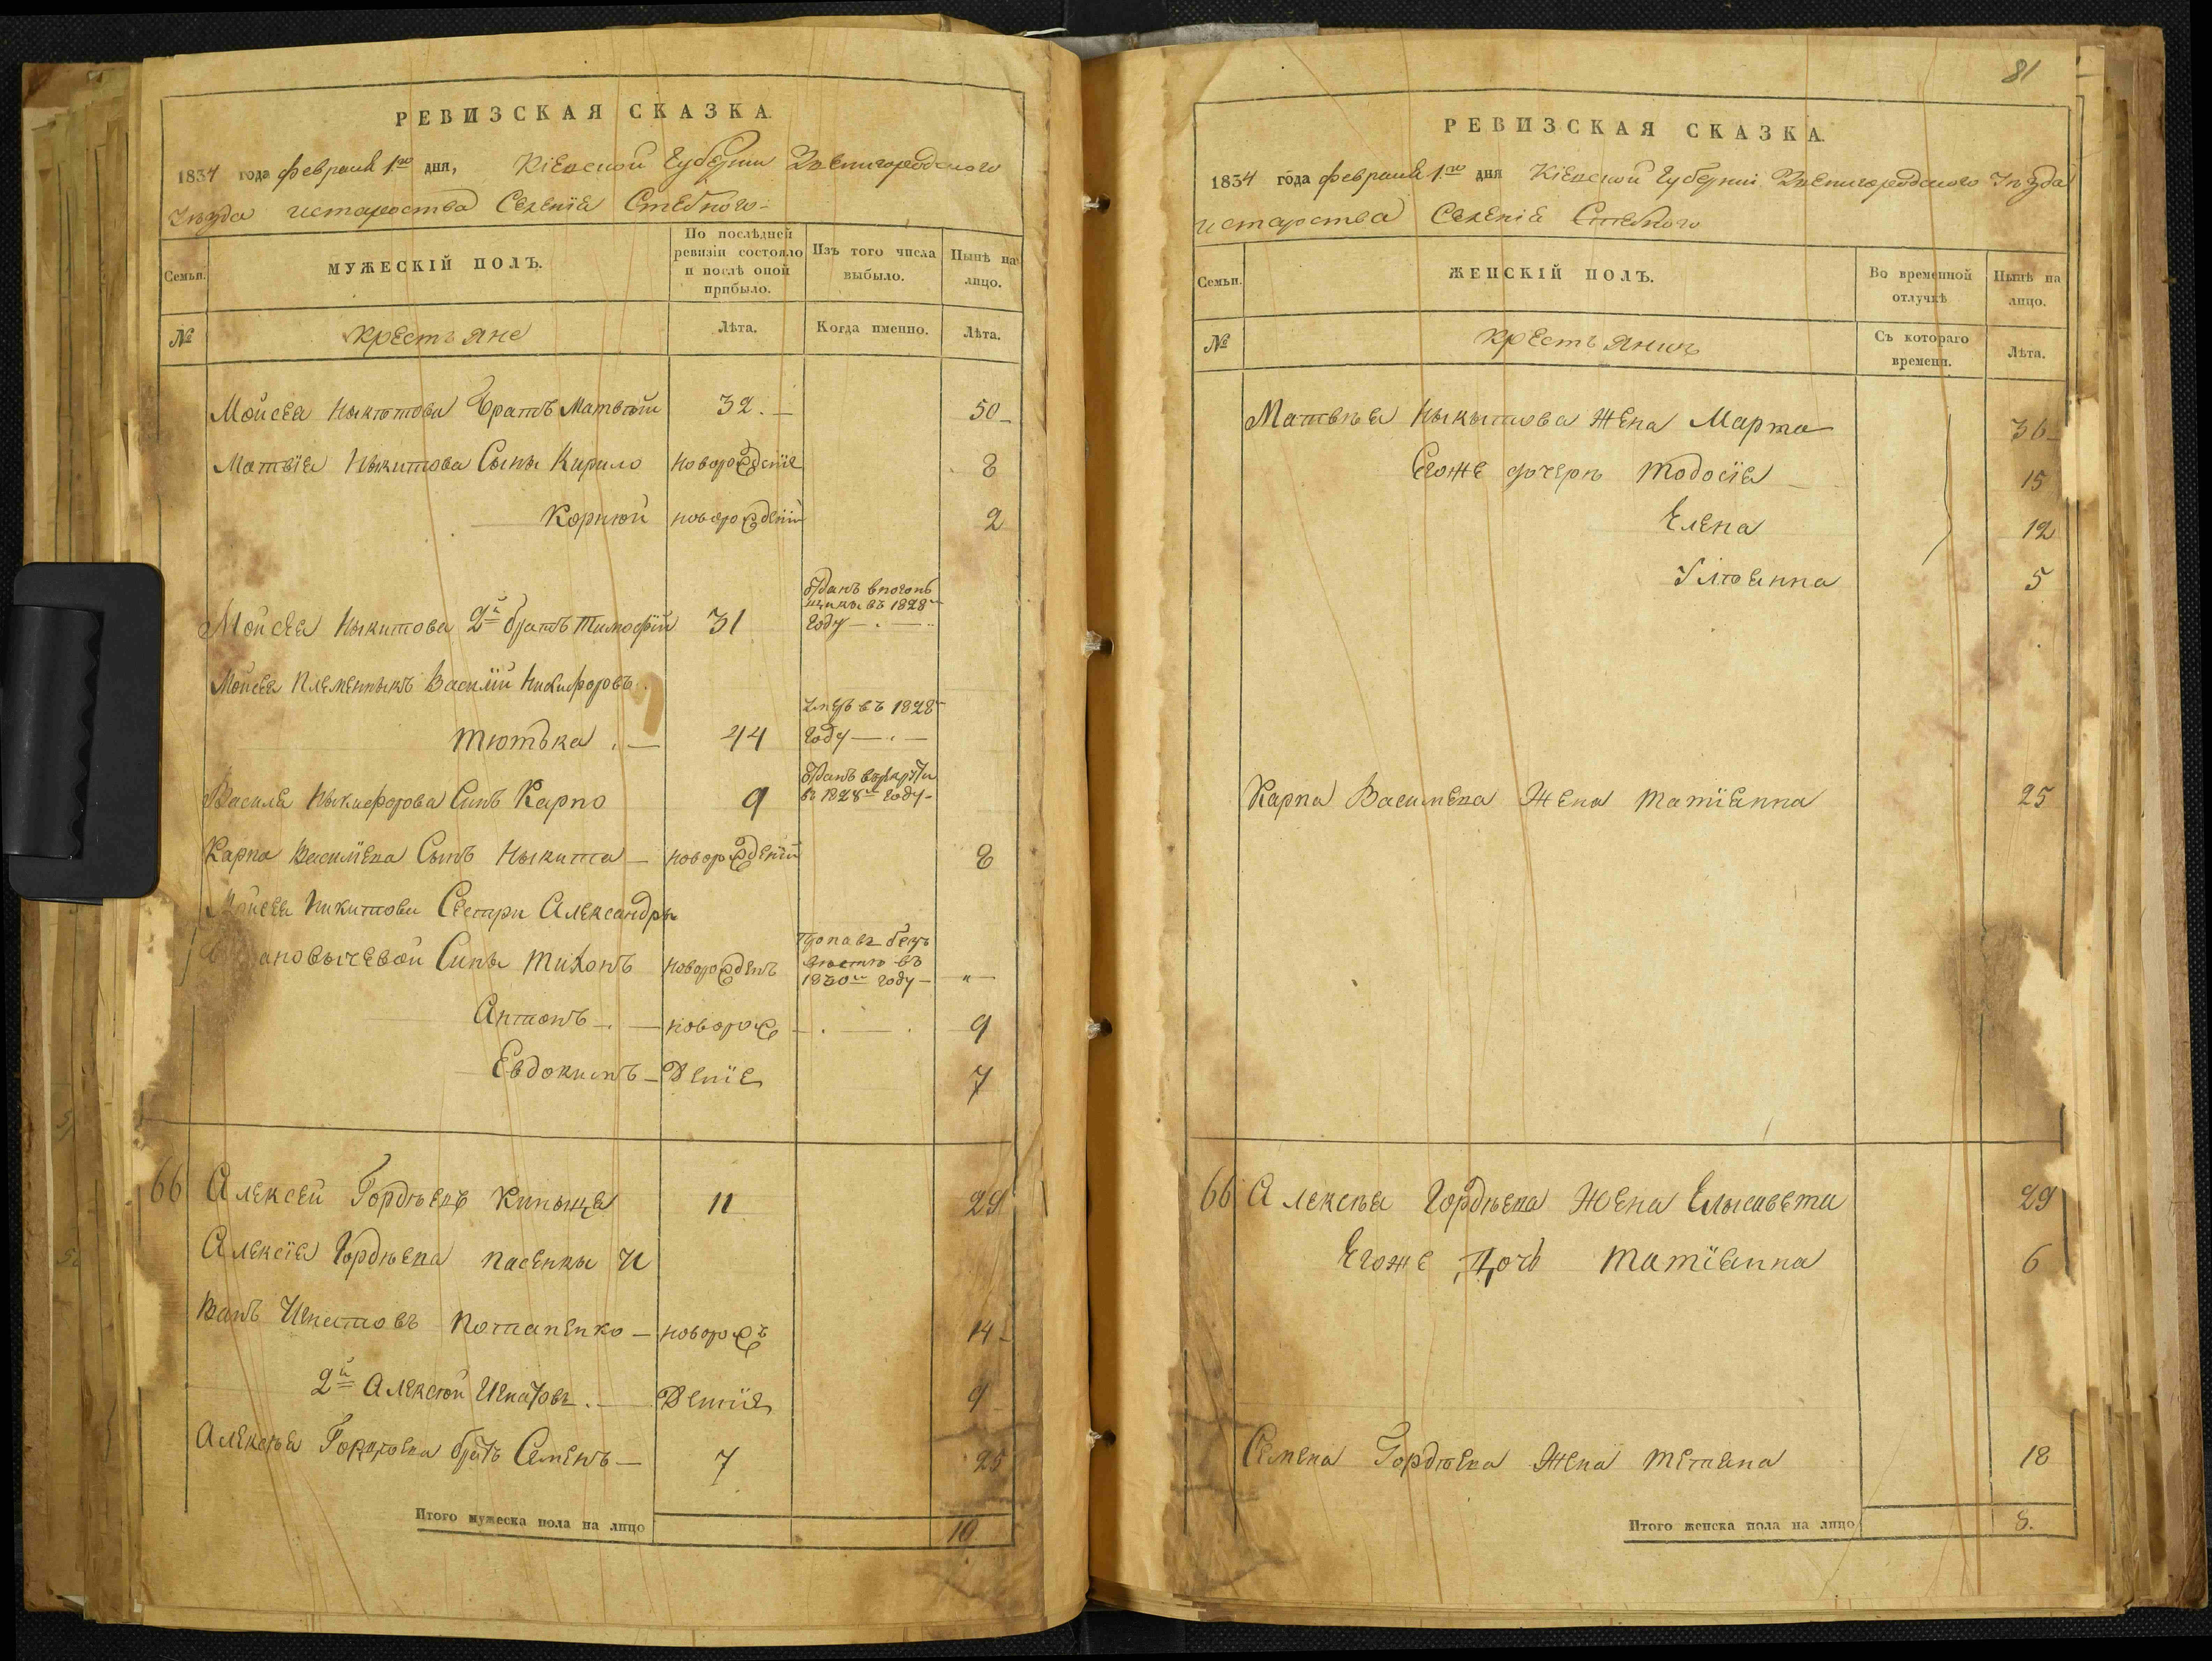 РЕВИЗСКАЯ СКАЗКА.
1834 года февраля 1го дня, Кіевской Губерніи Звенигородского
Уезда и староства Селенія Стебного
Семьи.
МУЖЕСКІЙ ПОЛЪ.
По послѣдней ревизіи состояло и послѣ оной прибыло.
Изъ того числа выбыло.
Нынѣ на лицо.
№
крестьяне
Лѣта.
Когда именно.
Лѣта.
Мойсея Ныкитова братъ Матвѣй 32. 50
Матвія Ныкитова Сыны Кирило новорожденіе 8
Корнюй новорожденій 2
Мойсея Ныкитова 2й братъ Тимофій 31
въ 1828м
году
Мойсея Племенныкъ Василій Никифоровъ
Тютька 44
въ 1828
году
Василя Ныкифорова Синъ Карпо 9
Отданъ в рекруты
въ 1828м году
Карпа Василіева Сынъ Ныкита новорожденій 8
Мойсея Никитова Сестри Александры
Сины Тихонъ новорожденъ
Пропавъ безъ
вѣсти въ
1830м году "
Антонъ новорож 9
Евдокимъ деніе 7
66 Алексей Гордѣевъ 11 29
Алексія Гордѣева пасенкы И
ванъ Игнатовъ Потапенко новорож 14
2й Алексѣй Игнатовъ деніе 9
Алексѣя Гордѣева братъ Семенъ 7 25
Итого мужеска пола на лицо 10
81
РЕВИЗСКАЯ СКАЗКА.
1834 года февраля 1го дня Кіевской Губерніи Звенигородского Уезда
и староства Селеніе Стебного
Семьи.
ЖЕНСКІЙ ПОЛЪ.
Во временной отлучкѣ
Нынѣ на лицо.
№
Съ котораго времени.
Лѣта.
Матвѣея Ныкытова жена Марта 36
Егоже дочерѣ Тодосія 15
Елена 12
Уліянна 5
Карпа Василіева Жена Татіянна 25
66 Алексѣя Гордѣева Жена Елысавета 29
Егоже Дочь Татіянна 6
Семена Гордѣева жена Тетяна 18
Итого женска пола на лицо 8.